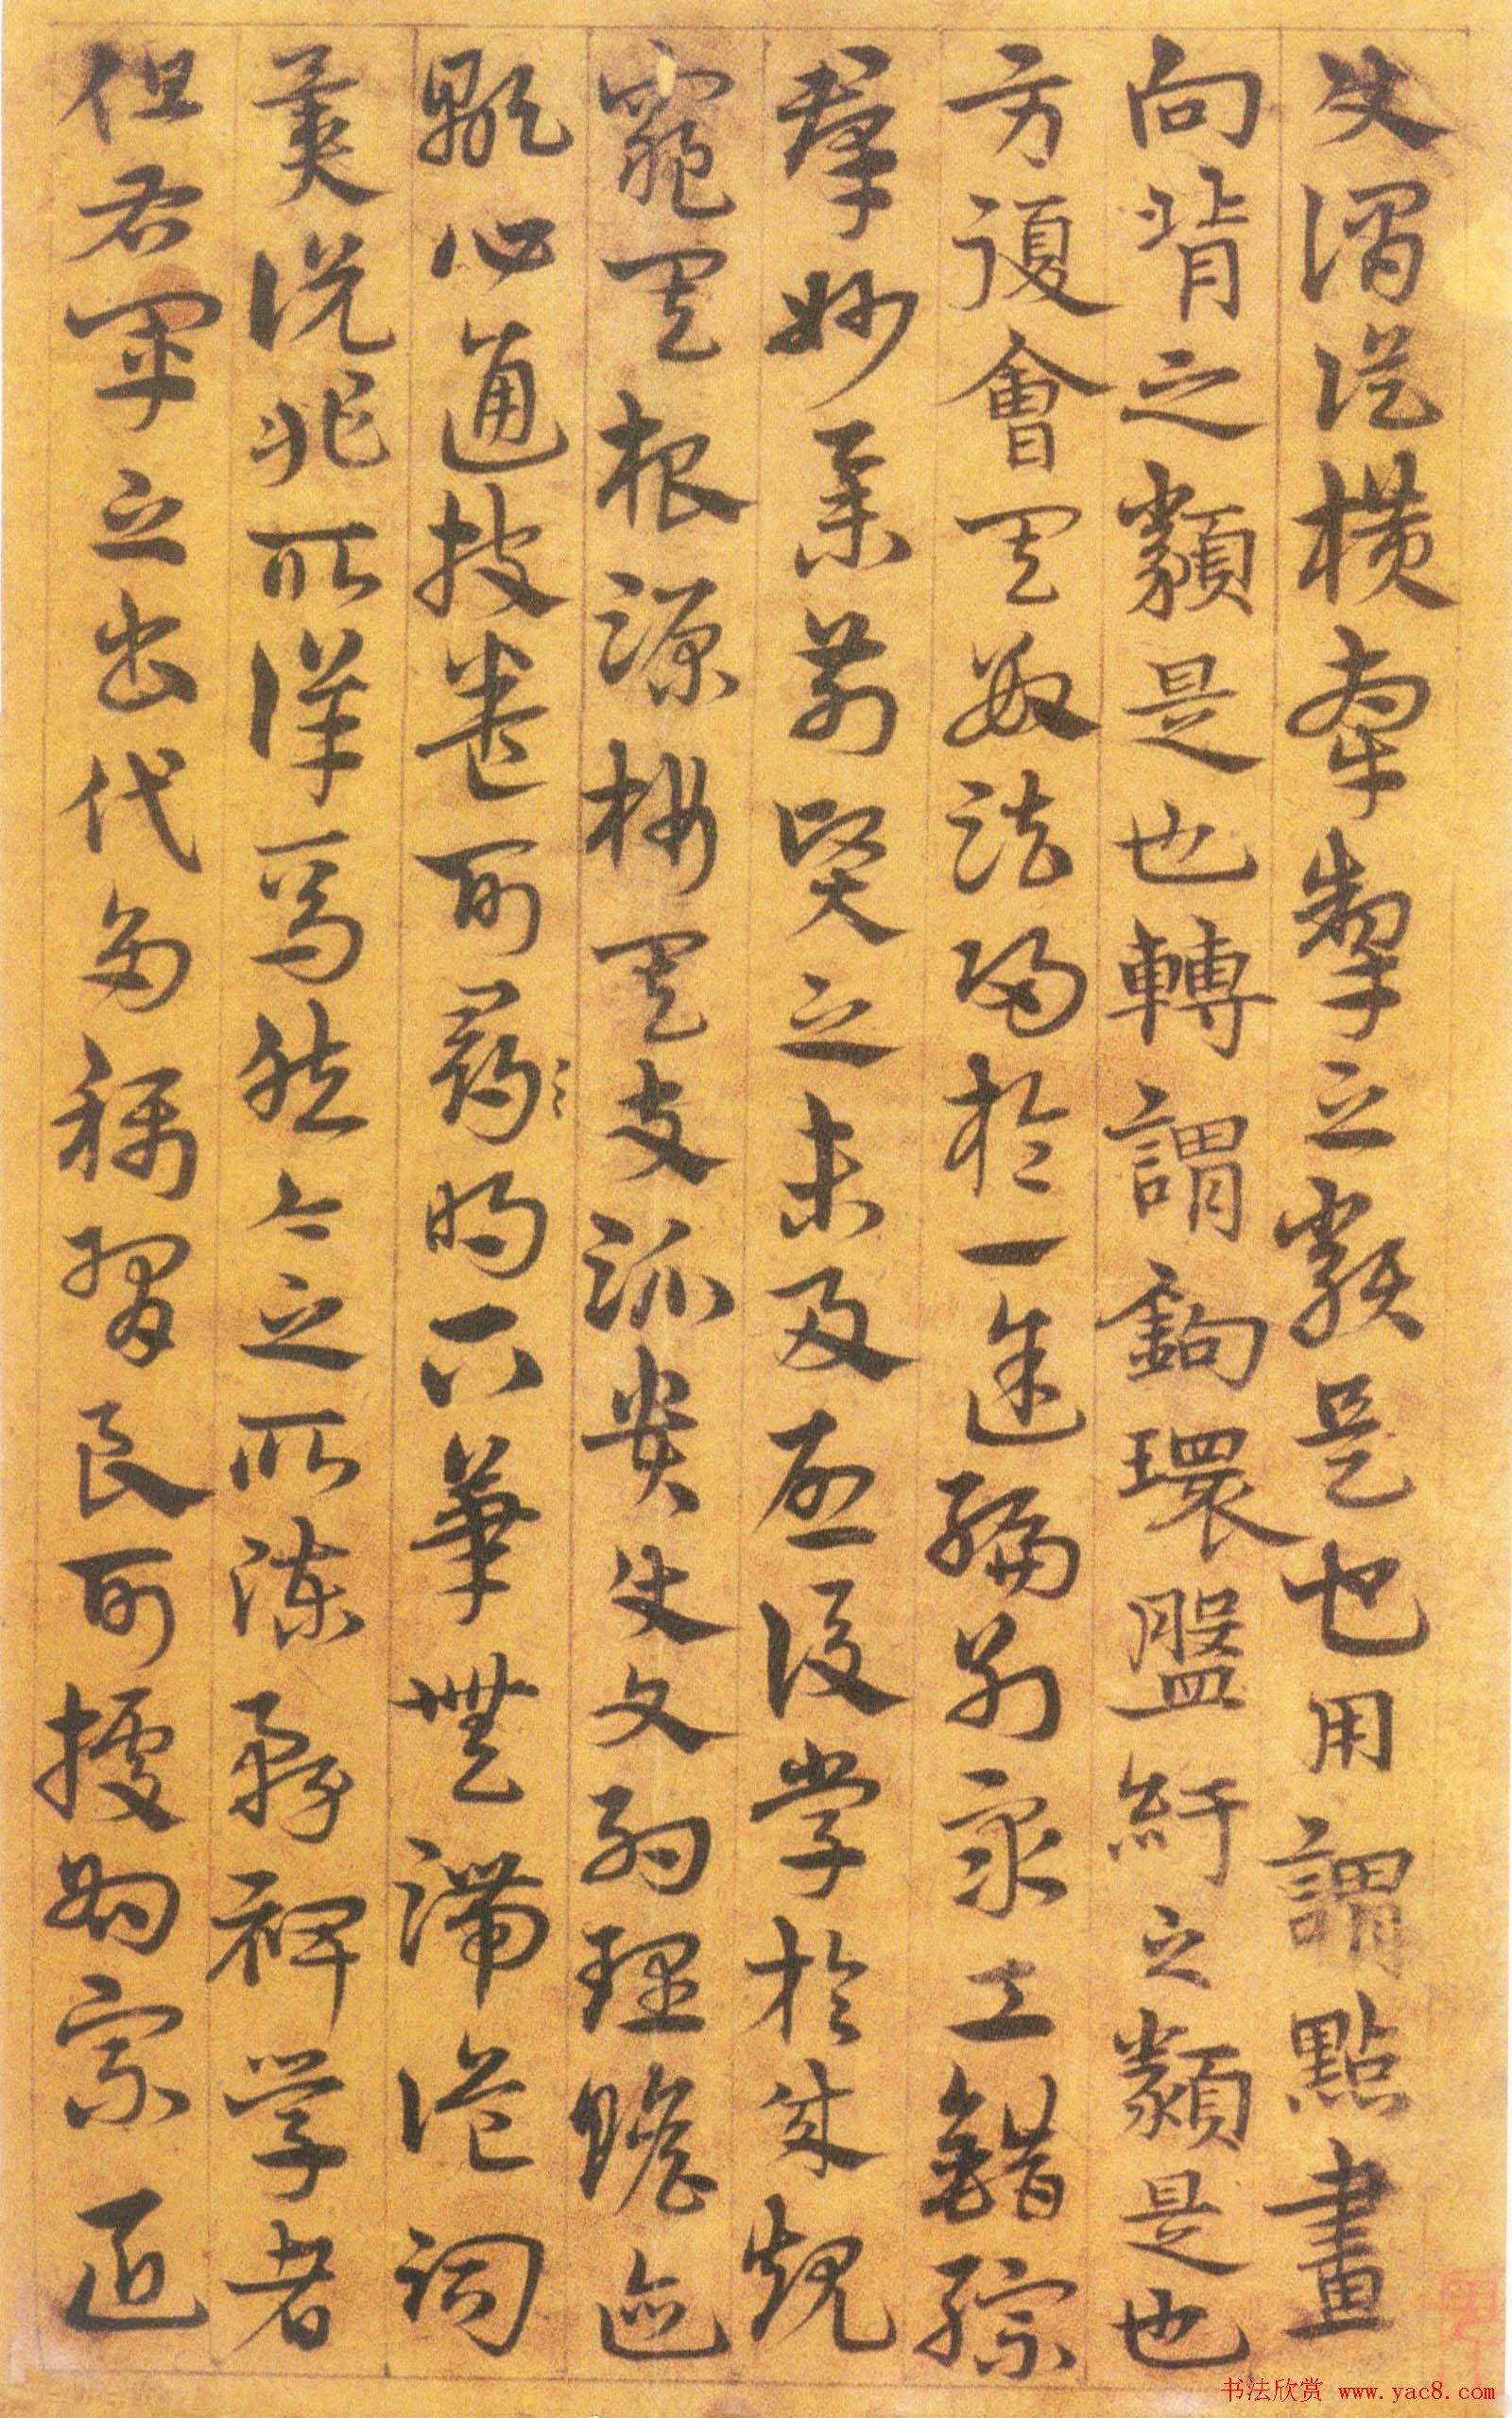 使謂縱橫牽掣之類是也用謂點畫
向背之類是也轉謂鉤環盤紆之類是也
方復會其數法歸於一途編列眾工錯綜
羣妙舉前賢之未及啟後學於成規
窺其根源析其枝派貴使文約理贍迹
顯心通披卷可明下筆無滯詭詞
異說非所詳焉然今之所陳務裨學者
但右軍之書代多稱習良可據為宗匠
书法欣赏 www.yac8.com